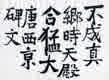 不成真
鄉時天殿
合猛大
唐西京
碑文